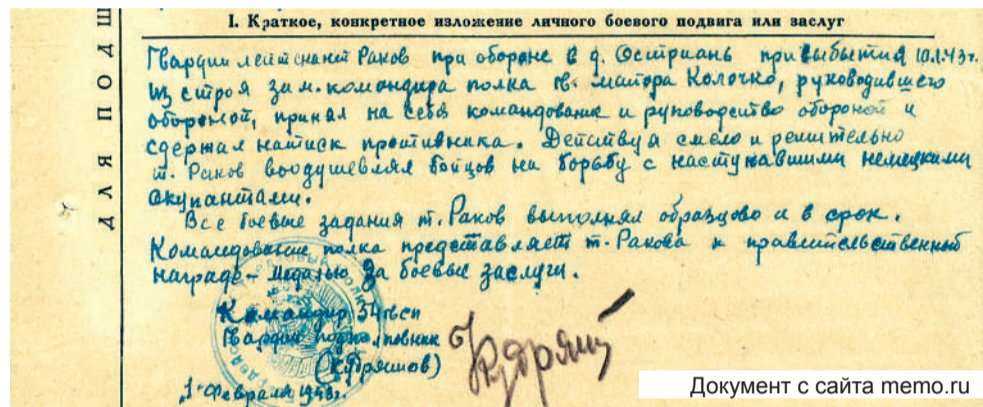 I. Краткое, конкретное изложение личного боевого подвига или заслуг
Гвардии лейтенант Раков при обороне в д. Остриань при выбытия 10.1.43г.
из строя зам. командира полка гв. маиора Колочко, руководившего
обороной, принял на себя командование и руководство обороной и
сдержал натиск противника. Действуя смело и решительно
т. Раков воодушевлял бойцов на борьбу с наступавшими немецкими
окупантами.
Все боевые задания т. Раков выполнял образцово и в срок.
Командование полка представляет т. Ракова к правительственный
награде – Медалью За боевые заслуги.
Командир 54 гвсп
Гвардии подполковник
(Кудряшов)
"1" Февраля 1943г.
ДЛЯ ПОДШ
Документ с сайта memo.ru